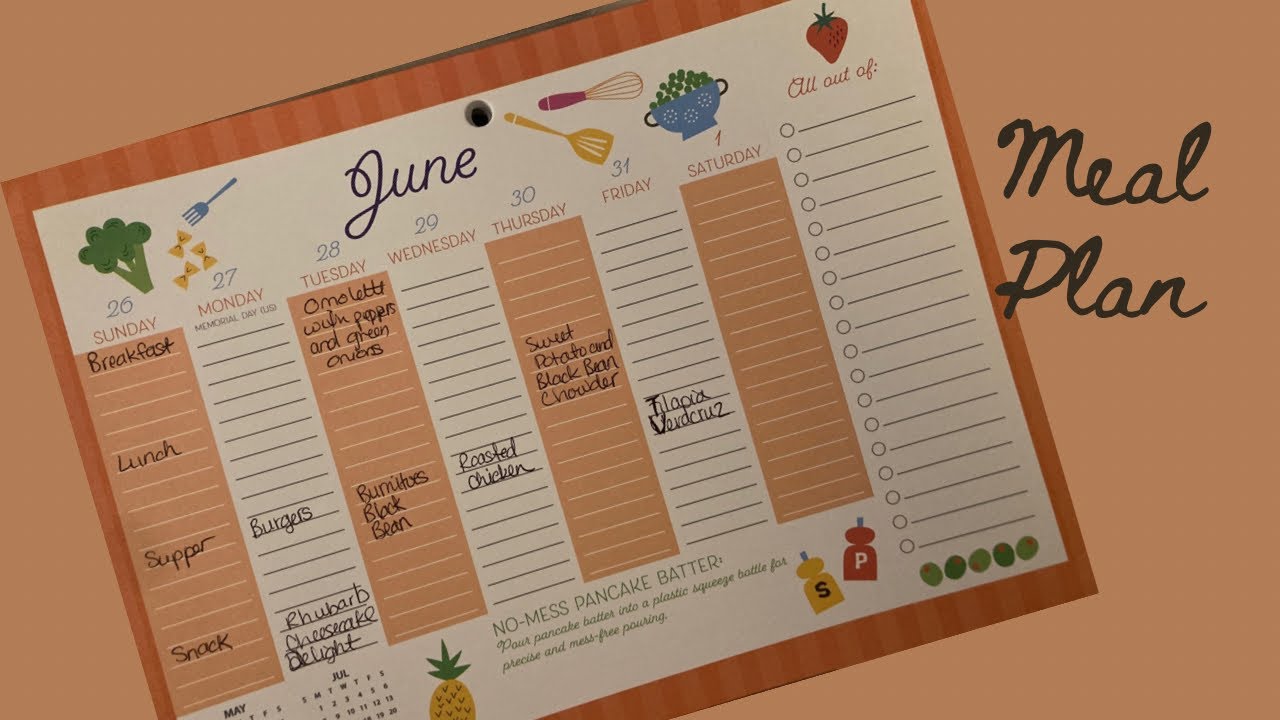 Meal
Plan
June
All out of:
26
SUNDAY
Breakfast
Lunch
Supper
Snack
27
MONDAY
MEMORIAL DAY (US)
Burgers
Rhubarb
Cheesecake
Delight
28
TUESDAY
Omolett
with peppers
and green
onions
Burritos
Black
Bean
29
WEDNESDAY
Roasted
chicken
30
THURSDAY
Sweet
Potato and
Black Bean
Chowder
31
FRIDAY
Tilapia
Veracruz
1
SATURDAY
NO-MESS PANCAKE BATTER:
Pour pancake batter into a plastic squeeze bottle for
precise and mess-free pouring.
S
P
MAY
T F S
JUL
S M T W T F S
1 2 3 4 5 6
8 9 10 11 12 13
18 19 20